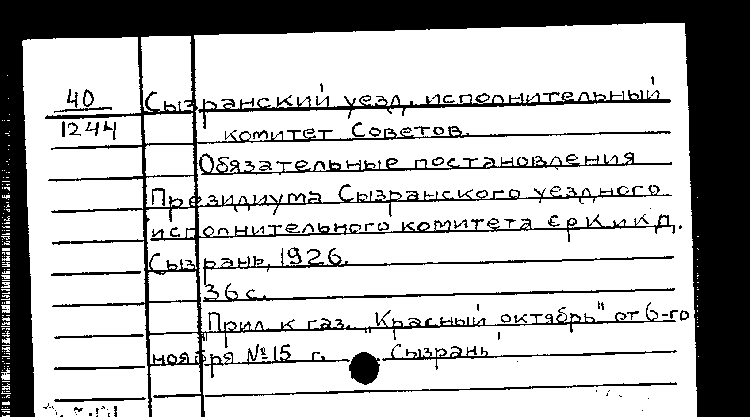 40
1244
Сызранский уезд. исполнительный
комитет Советов.
Обязательные постановления
Президиума Сызранского уездного
исполнительного комитета срКиКД.
Сызрань, 1926.
36 с.
"Прил. к газ. „Красный октябрь" от 6-го
ноября №15 г. Сызрань